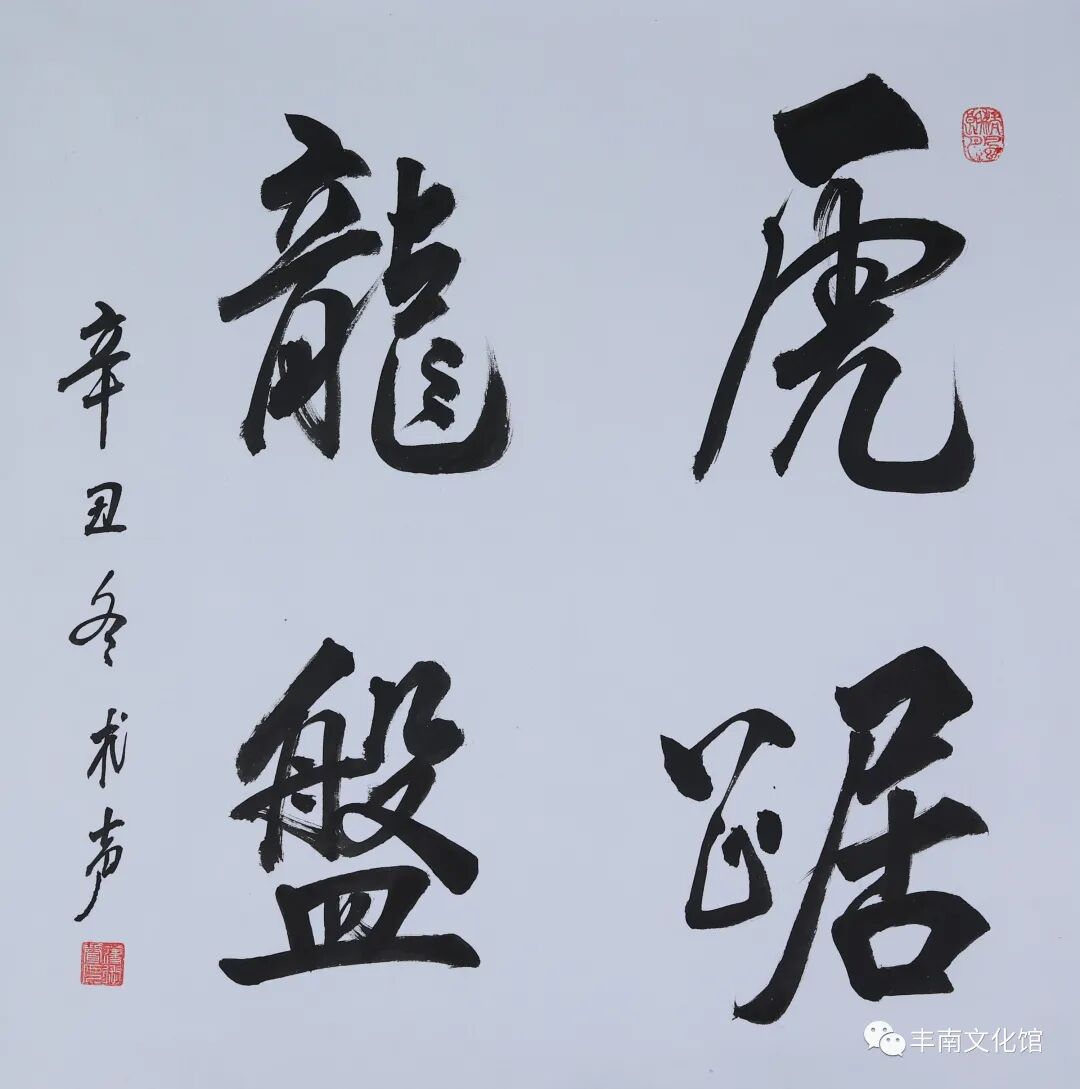 虎踞
龍盤
辛丑冬
丰南文化馆